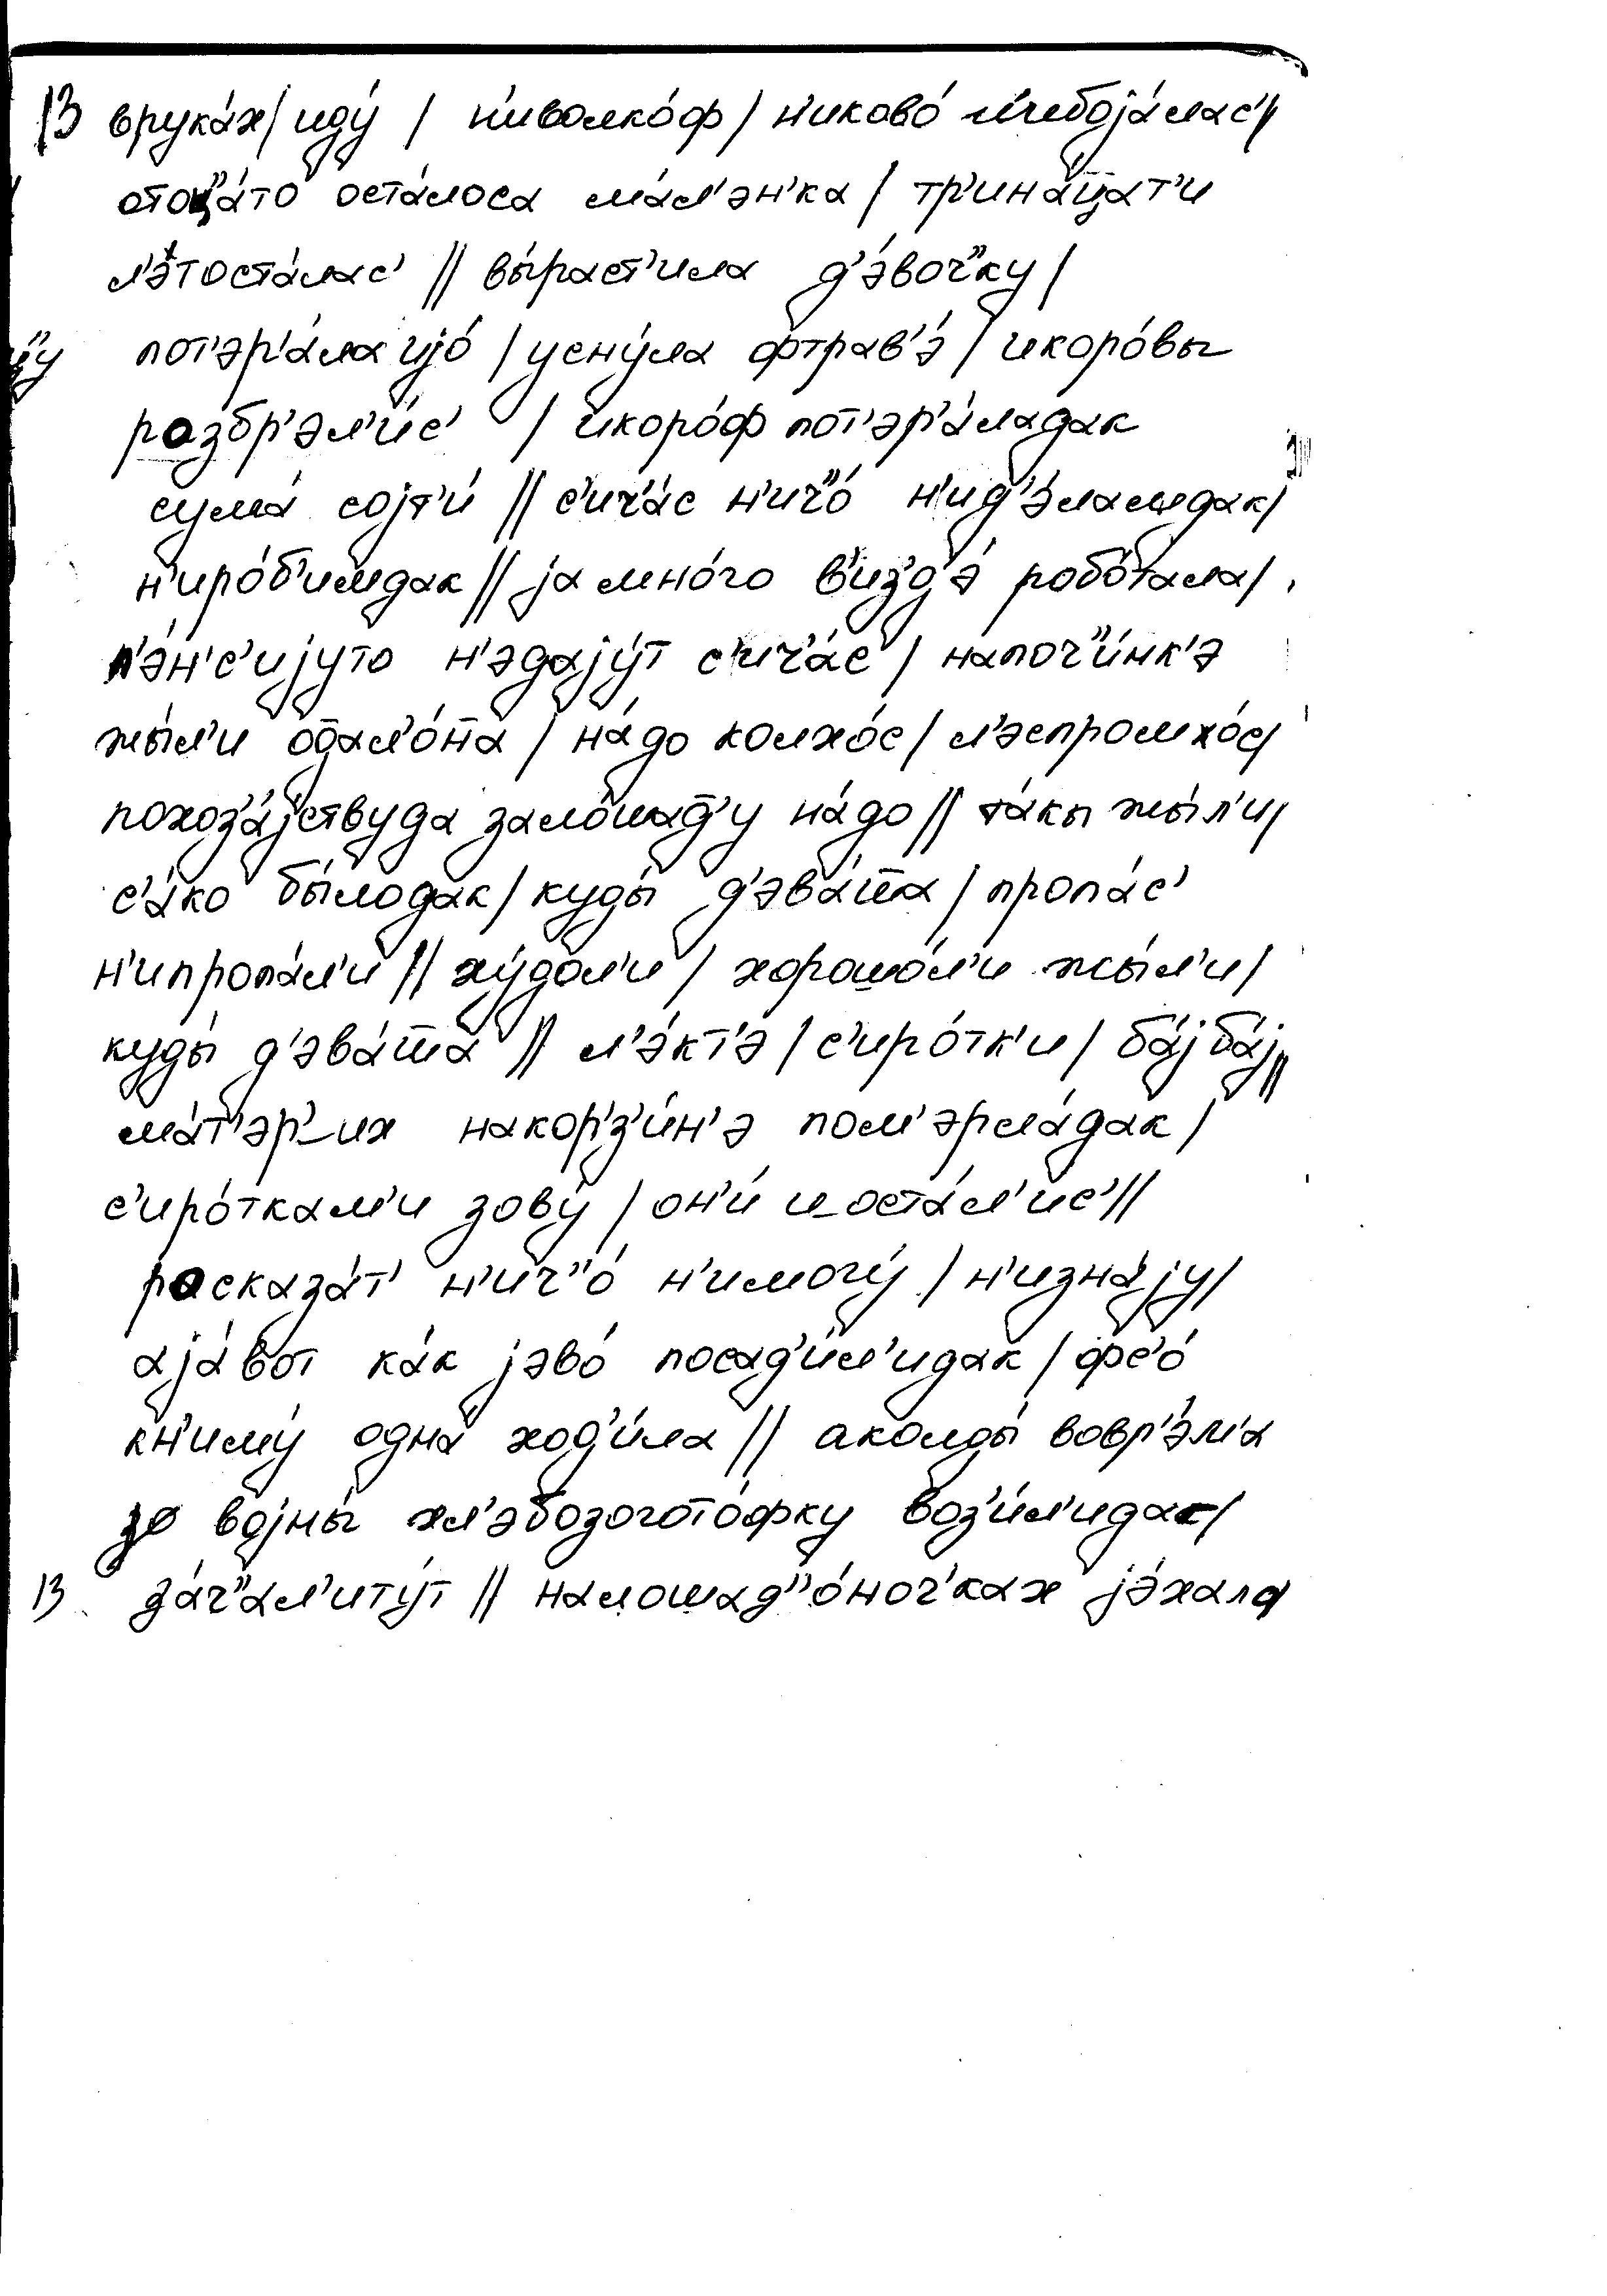 13 врука́х/ иду́ / н'иволко́ф / н'иково́ н'ибоjа́лас'//
отоц"а́то оста́лоса ма́л'эн'ка / тр'ина́цат'и
л'э́тоста́лас' // вы́раст'ила д'э́воч"ку /
пот'эр'а́ла иjо́ / усну́ла фтрав'э́ / икоро́вы
разбр'эл'и́с' / икоро́ф пот'эр'а́ладак
сума́ соjт'и́ // с'ич'а́с н'ич"о́ н'ид'э́ламдак/
н'иро́б'имдак // jа мно́го в'из'д'э́ робо́тала/
п'э́н'с'иjуто н'эдаjу́т с'ич'а́с / напоч"и́нк'э
жы́л'и одал'о́на / на́до колхо́с / л'эспромхо́с/
похоз'а́jствуда зало́шад'у на́до // та́кы жы́л'и/
с'а́ко бы́лодак / куды́ д'эва́ша / пропа́с'
н'ипропа́л'и // ху́дол'и / хорошо́л'и жы́л'и /
куды́ д'эва́ша // л'э́кт'э / с'иро́тк'и / ба́j ба́j//
ма́т'эр'_их накор'з'и́н'э пом'эрла́дак /
с'иро́ткам'и зову́ / он'и́ и_оста́л'ис' //
расказа́т' н'ич"о́ н'имогу́ / н'изна́jу/
аjа́вот ка́к jэво́ посад'и́л'идак / фс'о́
кн'иму́ одна́ ход'и́ла // аколды́ вовр'э́м'а
зо воjны́ хл'эбозогото́фку воз'и́л'идак/
13 за́ч"ал'иту́т // налошад"о́ноч'ках jэ́хала